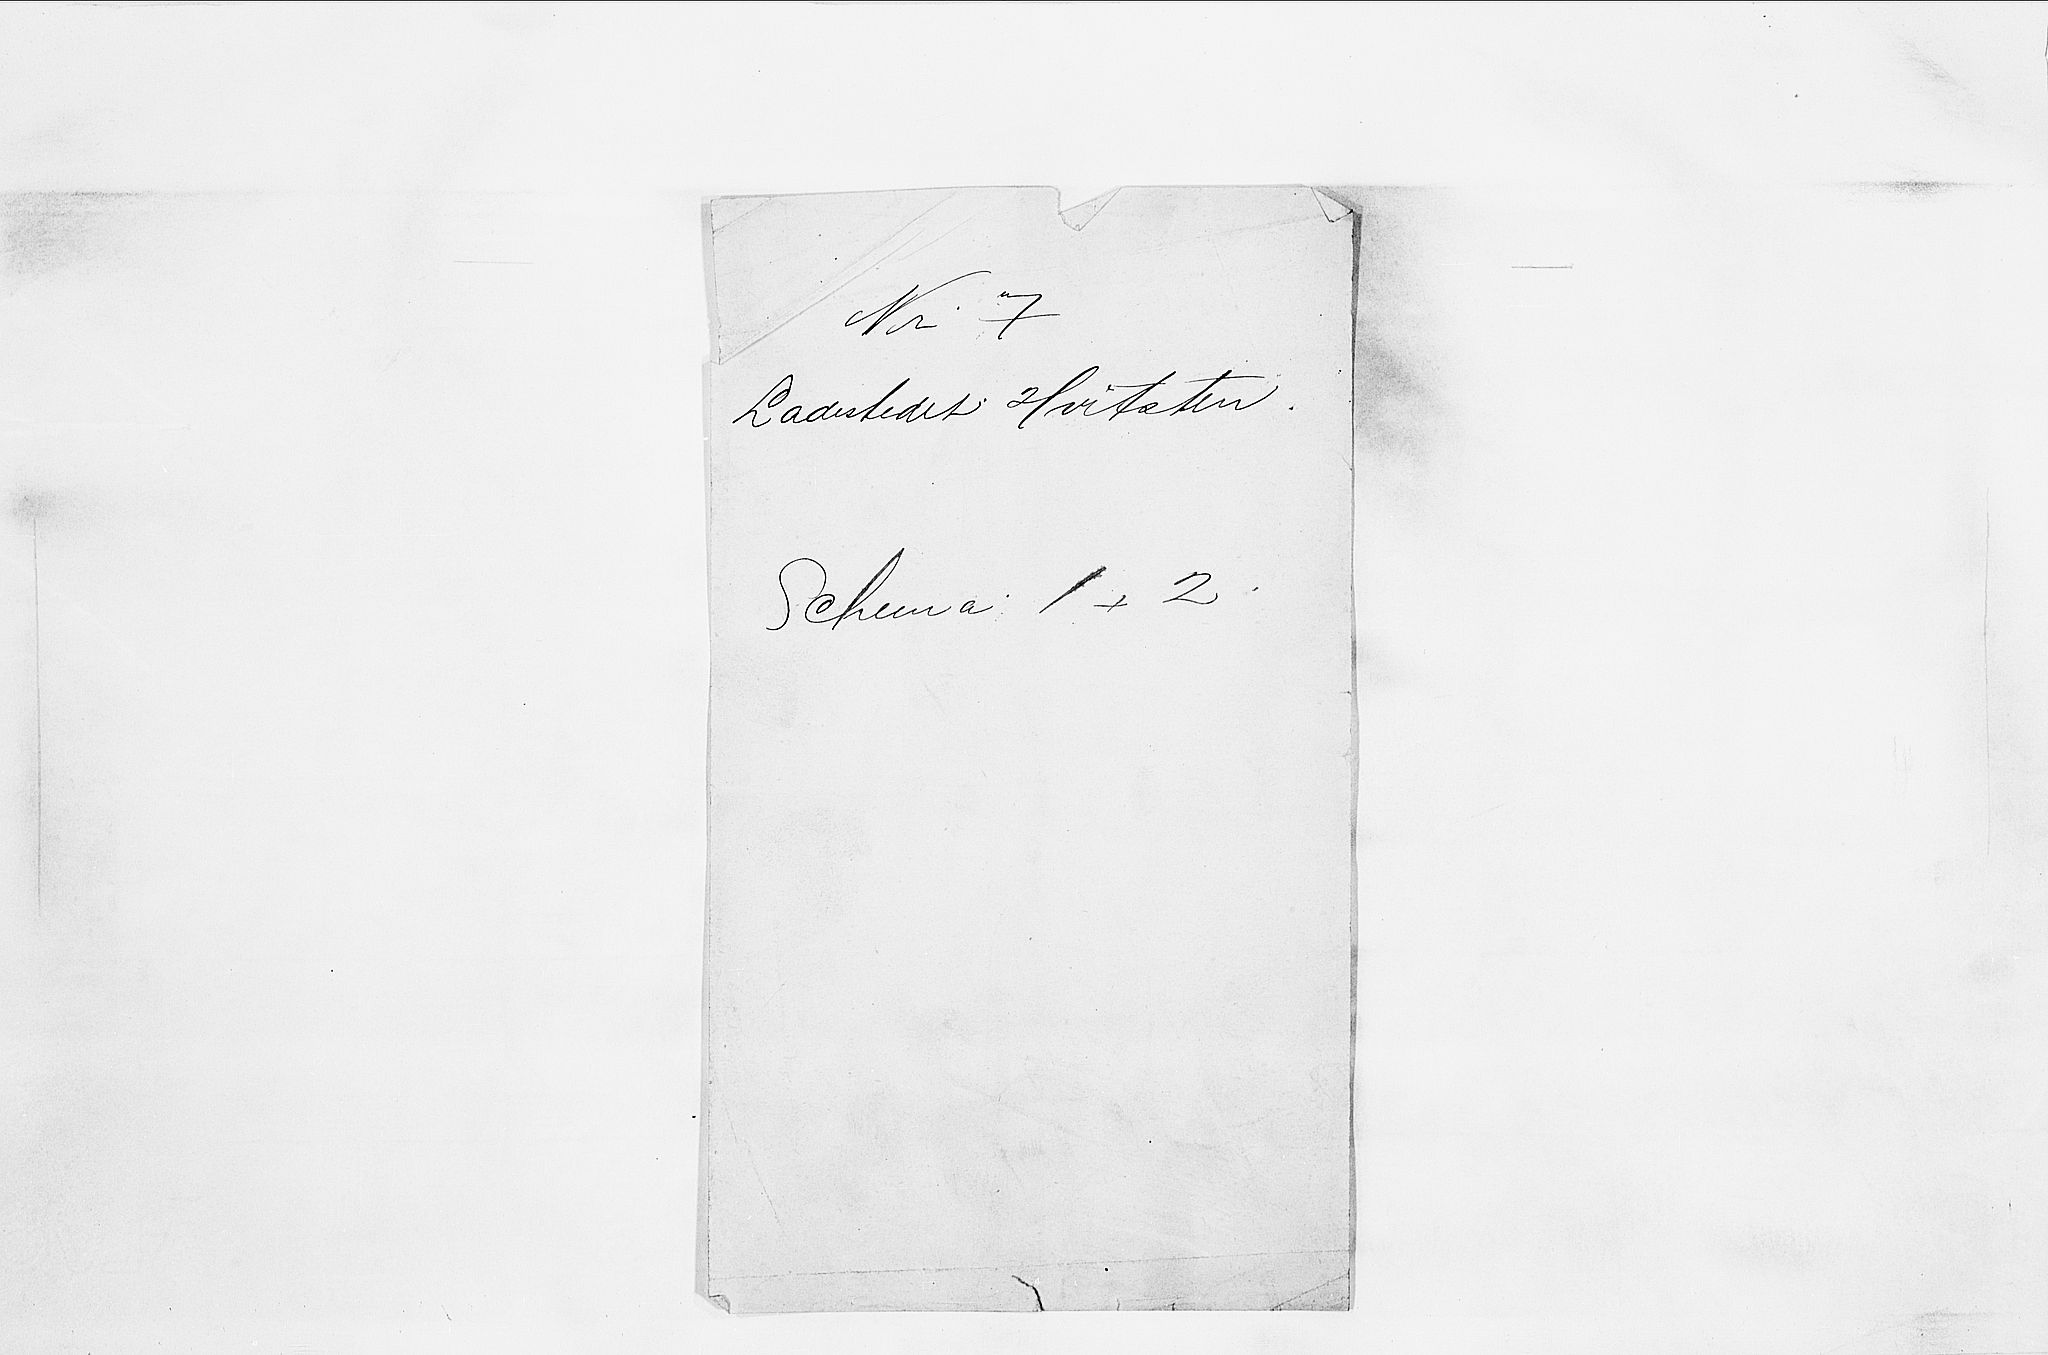 No. 7
Ladestedet Hvitsten.
Schema 1 + 2.